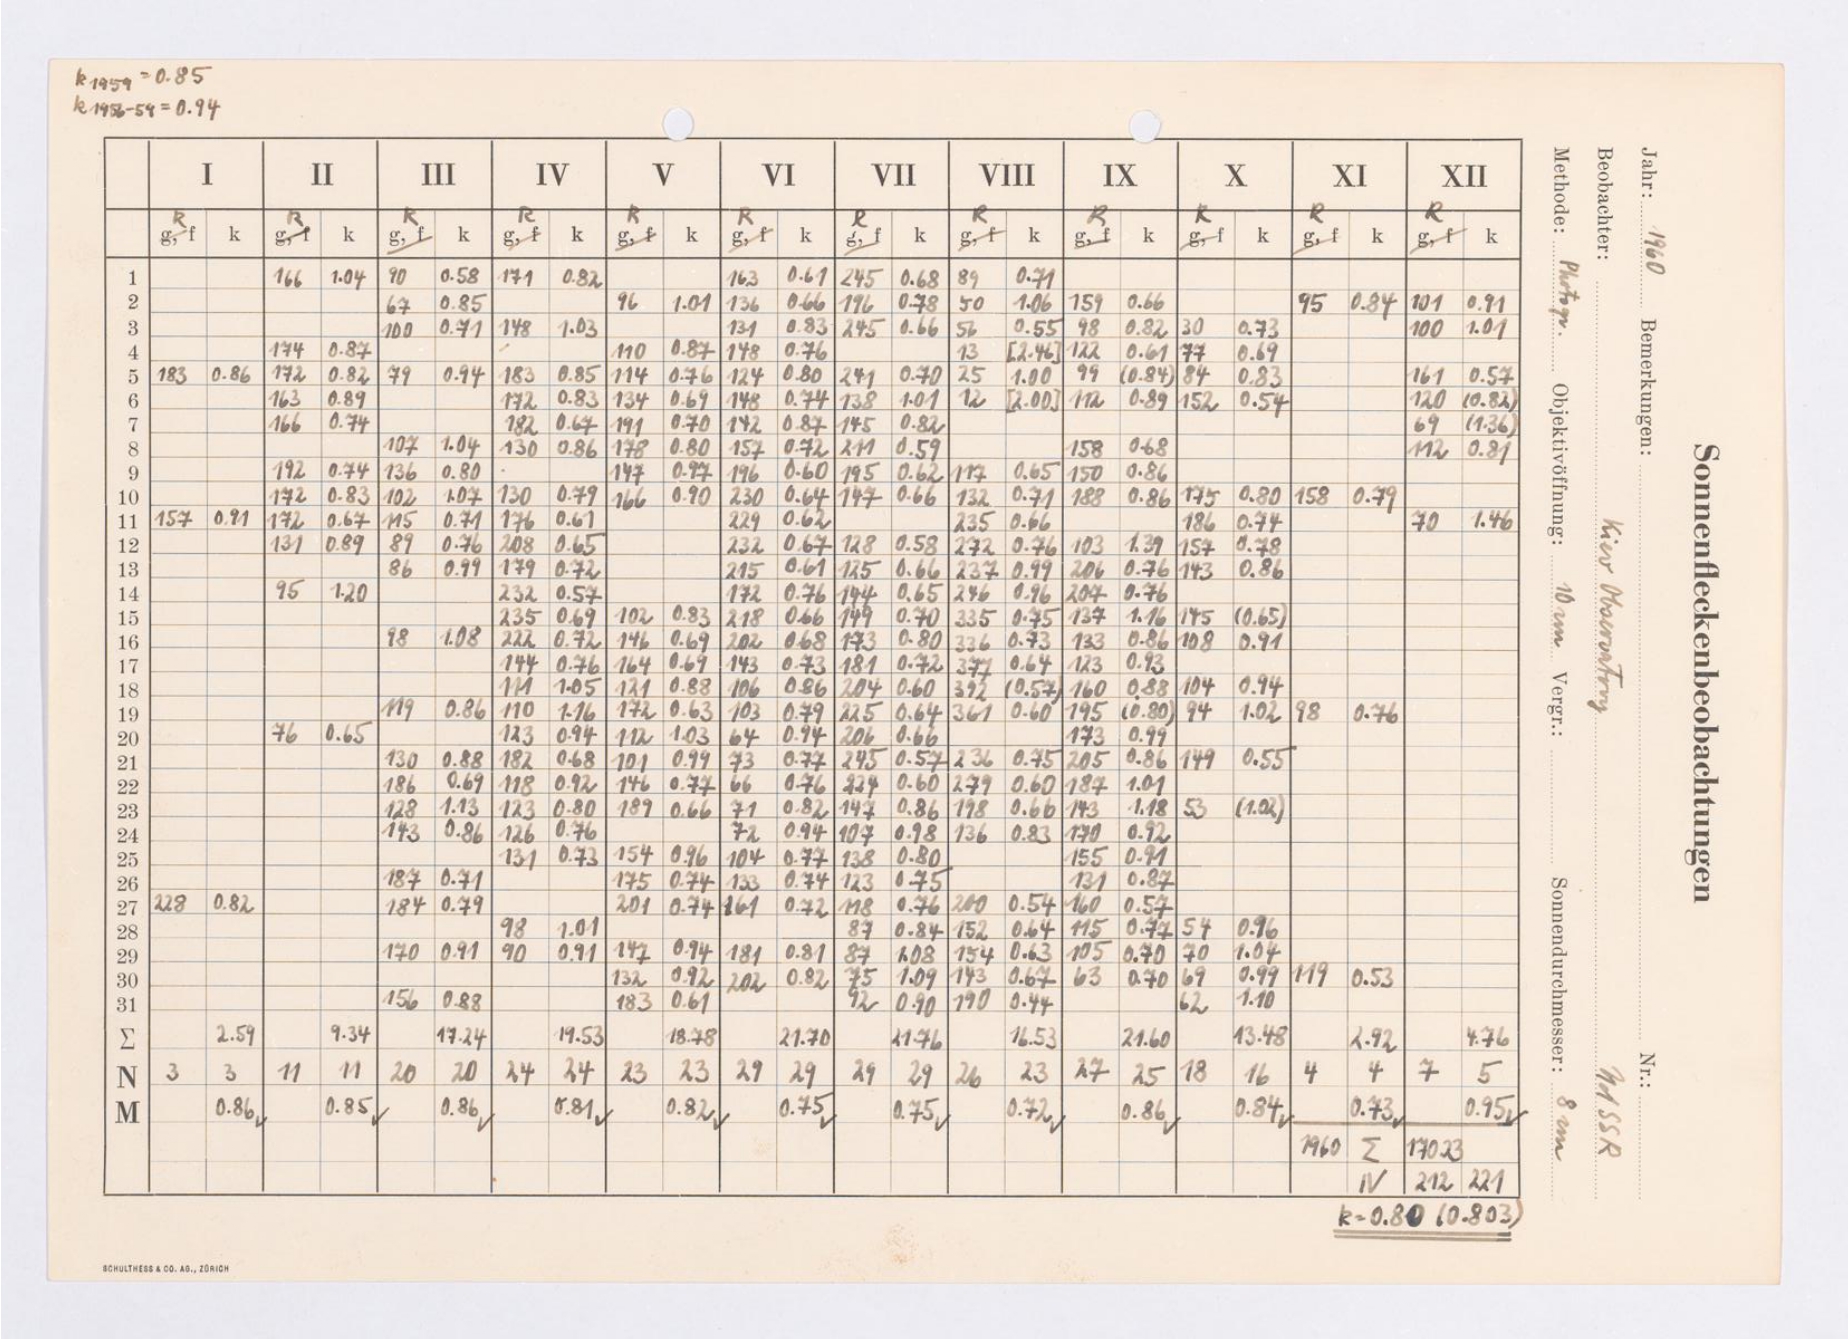 k 1959 = 0.85
k 1956-59 = 0.94
I II III IV V VI VII VIII IX X XI XII
R R R R R R R R R R R R
g, f k g, f k g, f k g, f k g, f k g, f k g, f k g, f k g, f k g, f k g, f k g, f k
1 166 1.04 90 0.58 171 0.82 163 0.61 245 0.68 89 0.71
2 67 0.85 96 1.01 136 0.66 196 0.78 50 1.06 159 0.66 95 0.84 101 0.91
3 100 0.71 148 1.03 131 0.83 245 0.66 56 0.55 98 0.82 30 0.73 100 1.01
4 174 0.87 110 0.87 148 0.76 13 [2.46] 122 0.61 77 0.69
5 183 0.86 172 0.82 79 0.94 183 0.85 114 0.76 124 0.80 241 0.70 25 1.00 99 (0.84) 84 0.83 161 0.57
6 163 0.89 172 0.83 134 0.69 148 0.74 138 1.01 12 [2.00] 112 0.89 152 0.54 120 (0.82)
7 166 0.74 182 0.67 191 0.70 142 0.87 145 0.82 69 (1.36)
8 107 1.04 130 0.86 178 0.80 157 0.72 211 0.59 158 0.68 112 0.81
9 192 0.74 136 0.80 147 0.97 196 0.60 195 0.62 117 0.65 150 0.86
10 172 0.83 102 1.07 130 0.79 166 0.90 230 0.64 147 0.66 132 0.71 188 0.86 175 0.80 158 0.79
11 157 0.91 172 0.67 115 0.71 176 0.61 229 0.62 235 0.66 186 0.74 70 1.46
12 131 0.89 89 0.76 208 0.65 232 0.67 128 0.58 272 0.76 103 1.39 157 0.78
13 86 0.99 179 0.72 215 0.61 125 0.66 237 0.99 206 0.76 143 0.86
14 95 1.20 232 0.57 172 0.76 144 0.65 246 0.96 207 0.76
15 235 0.69 102 0.83 218 0.66 149 0.70 335 0.75 137 1.16 145 (0.65)
16 98 1.08 222 0.72 146 0.69 202 0.68 173 0.80 336 0.73 133 0.86 108 0.91
17 144 0.76 164 0.69 143 0.73 181 0.72 377 0.64 123 0.93
18 111 1.05 121 0.88 106 0.86 204 0.60 392 (0.57) 160 0.88 104 0.94
19 119 0.86 110 1.16 172 0.63 103 0.79 225 0.64 361 0.60 195 (0.80) 94 1.02 98 0.76
20 76 0.65 123 0.94 112 1.03 64 0.94 206 0.66 173 0.99
21 130 0.88 182 0.68 101 0.99 73 0.77 245 0.57 236 0.75 205 0.86 149 0.55
22 186 0.69 118 0.92 146 0.77 66 0.76 224 0.60 279 0.60 187 1.01
23 128 1.13 123 0.80 189 0.66 71 0.82 147 0.86 198 0.66 143 1.18 53 (1.02)
24 143 0.86 126 0.76 72 0.94 107 0.98 136 0.83 170 0.92
25 131 0.73 154 0.96 104 0.77 138 0.80 155 0.91
26 187 0.71 175 0.74 133 0.74 123 0.75 131 0.87
27 228 0.82 184 0.79 201 0.74 161 0.72 118 0.76 200 0.54 160 0.57
28 98 1.01 87 0.84 152 0.64 115 0.77 54 0.96
29 170 0.91 90 0.91 147 0.94 181 0.81 87 1.08 154 0.63 105 0.70 70 1.04
30 132 0.92 202 0.82 75 1.09 143 0.67 63 0.70 69 0.99 119 0.53
31 156 0.88 183 0.61 92 0.90 190 0.44 62 1.10
Σ 2.59 9.34 17.24 19.53 18.78 21.70 21.76 16.53 21.60 13.48 2.92 4.76
N 3 3 11 11 20 20 24 24 23 23 29 29 29 29 26 23 27 25 18 16 4 4 7 5
M 0.86✓ 0.85✓ 0.86✓ 0.81✓ 0.82✓ 0.75✓ 0.75✓ 0.72✓ 0.86✓ 0.84✓ 0.73✓ 0.95✓
1960 Σ 170.23
N 212 221
k = 0.80 (0.803)
SCHULTHESS & CO. AG., ZÜRICH
Sonnenfleckenbeobachtungen
Jahr: 1960 Bemerkungen: Nr.:
Beobachter: Kiev Observatory UdSSR
Methode: Photogr. Objektivöffnung: 10 cm Vergr.: Sonnendurchmesser: 8 cm